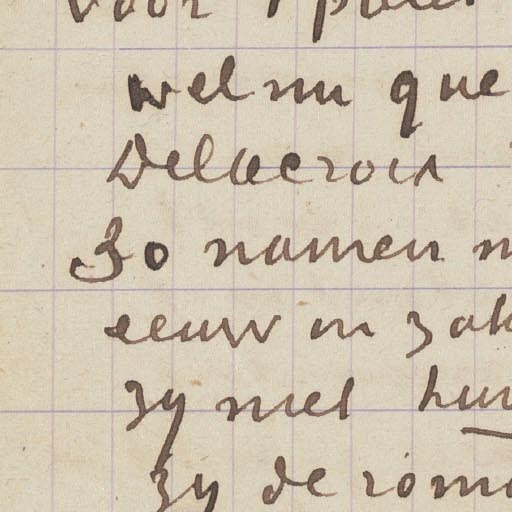 voor 1
wel nu que
Delacroix
Zo namen
eeuw en zak
zy met hun
zy de rom